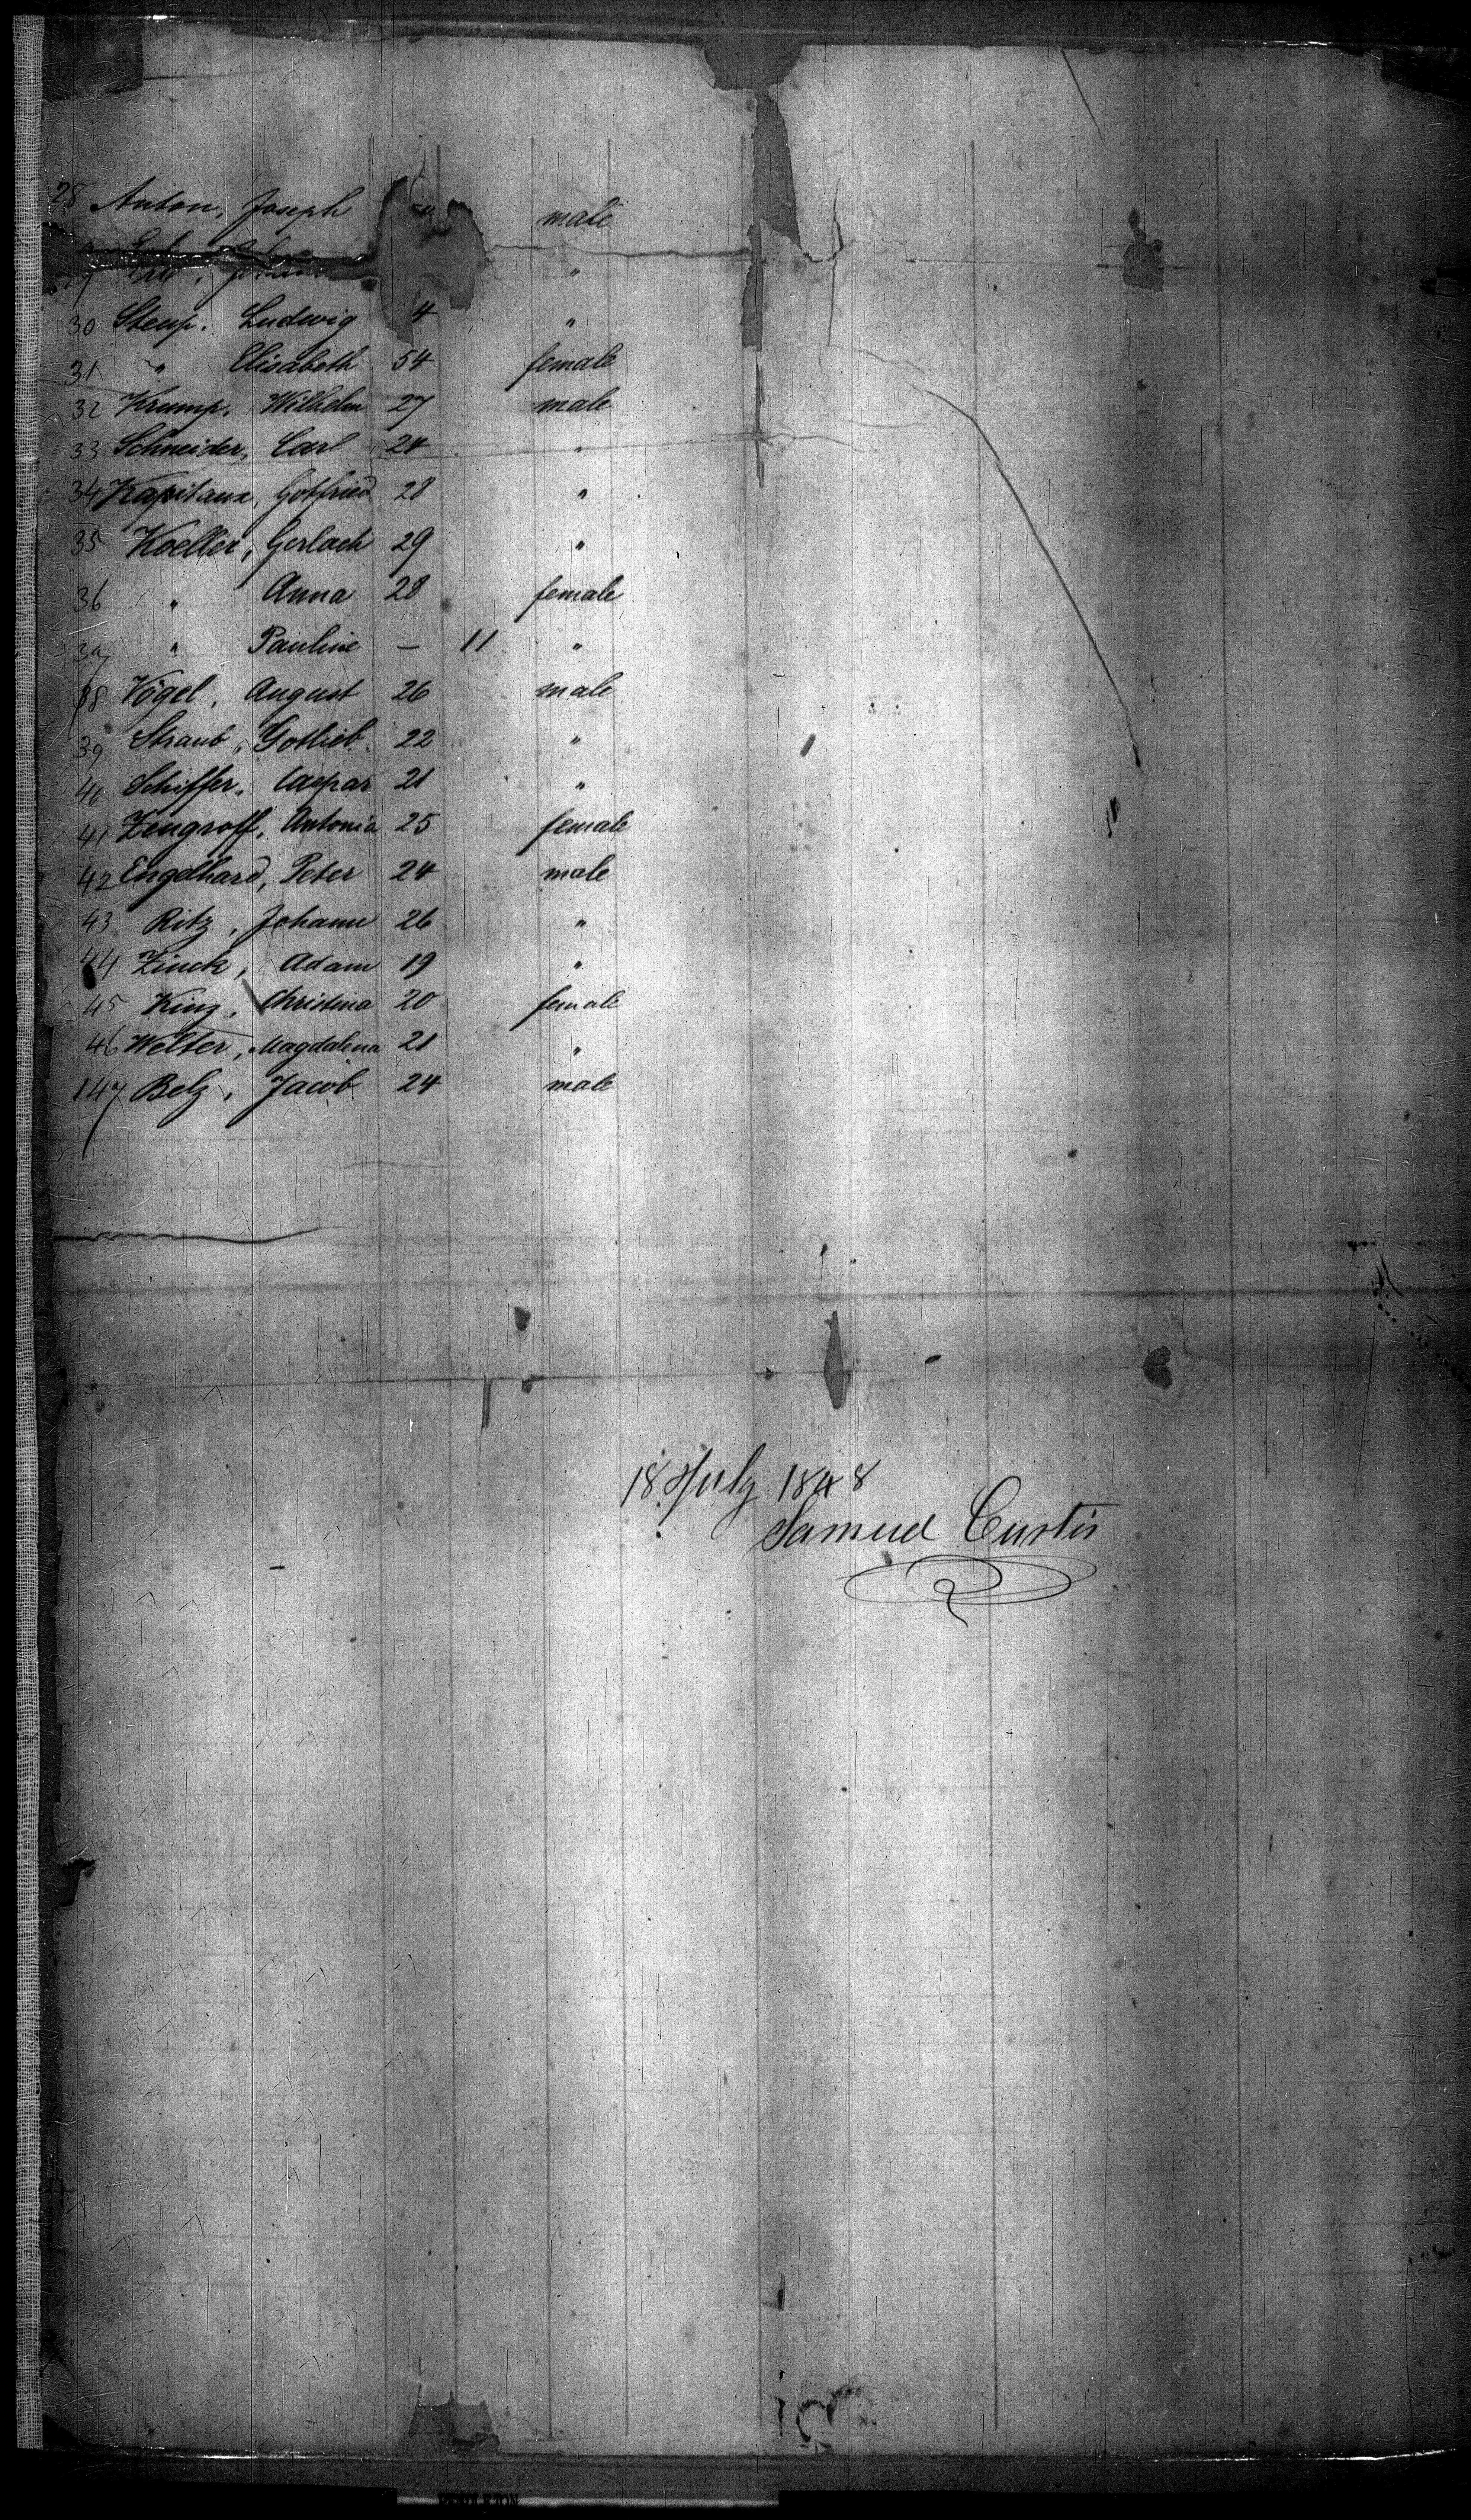 28 Anton, Joseph male
"
30 Steup. Ludwig 4 "
31 " Elisabeth 54 female
32 Krump. Wilhelm 27 male
33 Schneider, Carl 24 "
34 Kapitanx, Gotfried 28 "
35 Koeller, Gerlach 29 "
36 " Anna 28 female
" Pauline — 11 "
38 Vögel, August 26 male
39 Straub, Gotlieb 22 "
40 Schiffer, Caspar 21 "
41 Zengroff, Antonia 25 female
42 Engelhard, Peter 24 male
43 Ritz, Johann 26 "
44 Zinck, Adam 19 "
45 King, Christina 20 female
46 Welter, Magdalena 21 "
147 Belz, Jacob 24 male
18 July 1848
Samuel Curtis